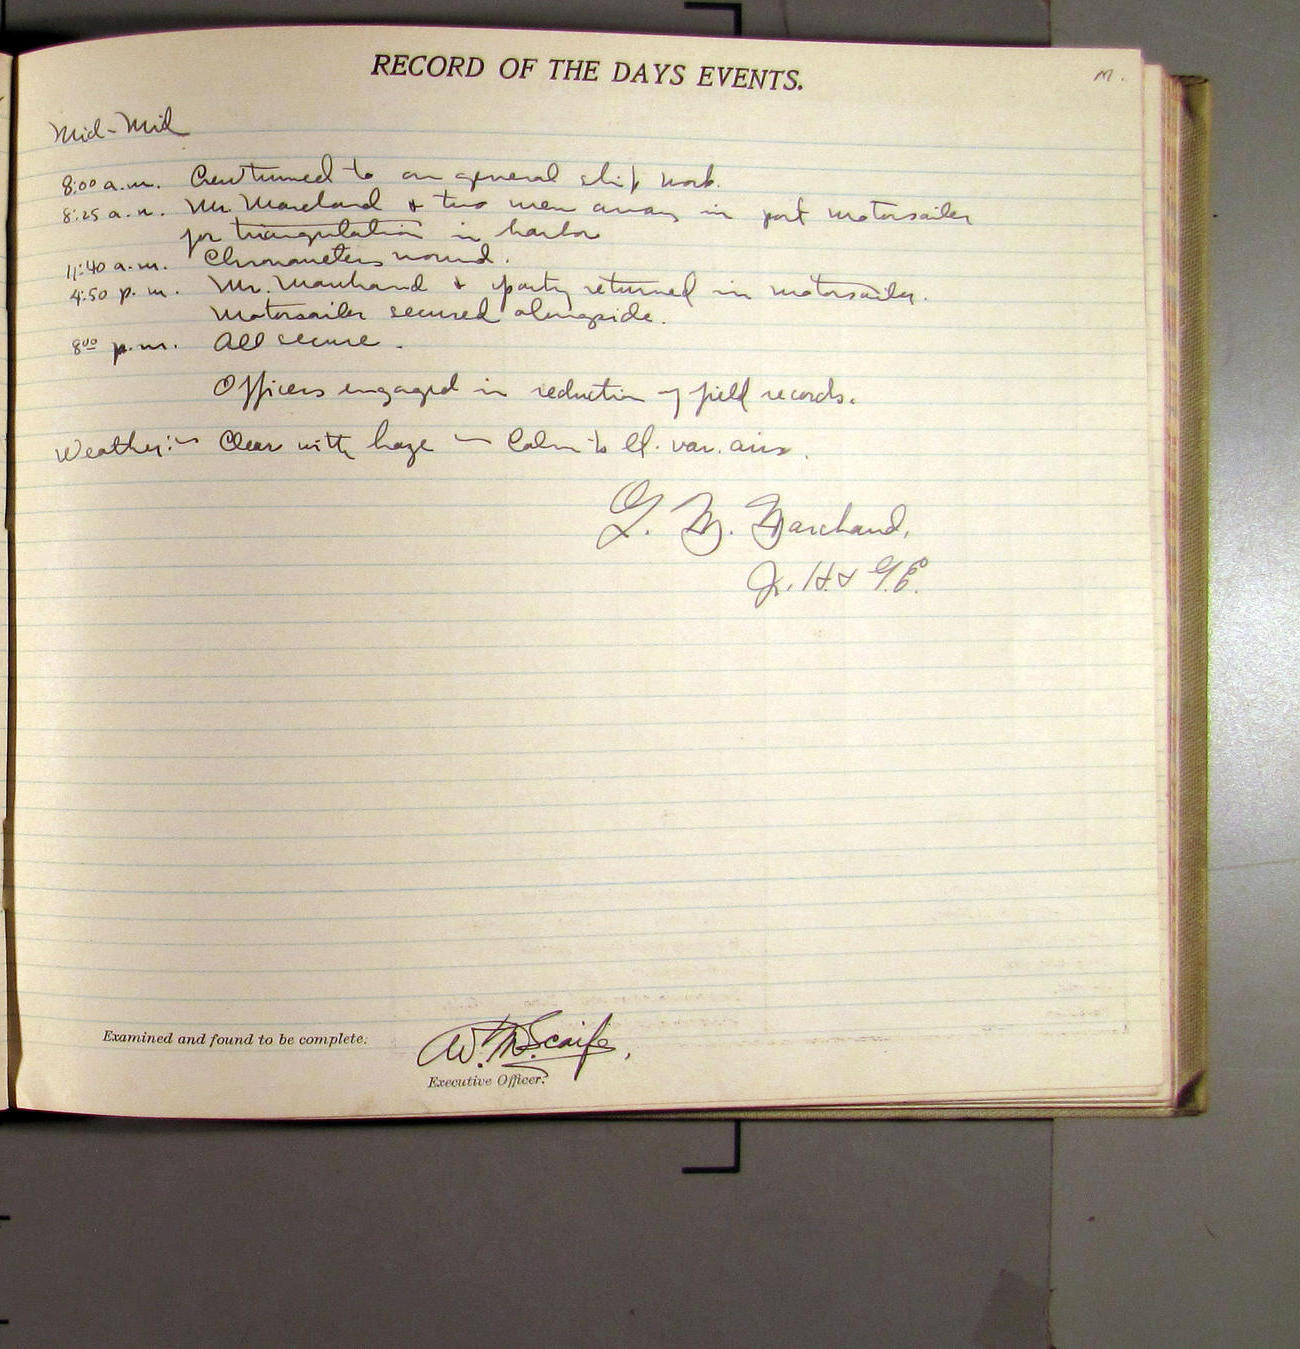 RECORD OF THE DAYS EVENTS.
M.
Mid-Mid
8:00 a.m. Crew turned to on general ship work.
8:25 a.m. Mr. Marchand & two men away in port motorsailer
for triangulation in harbor
11:40 a.m. Chronometers wound.
4:50 p.m. Mr. Marchand & party returned in motorsailer.
Motorsailer secured alongside.
8:00 p.m. All secure.
Officers engaged in reduction of field records.
Weather:- Clear with haze - Calm to lt. var. airs.
G. M. Marchand,
Jr. H. & G.E.
Examined and found to be complete:
W. M. Scaife,
Executive Officer.